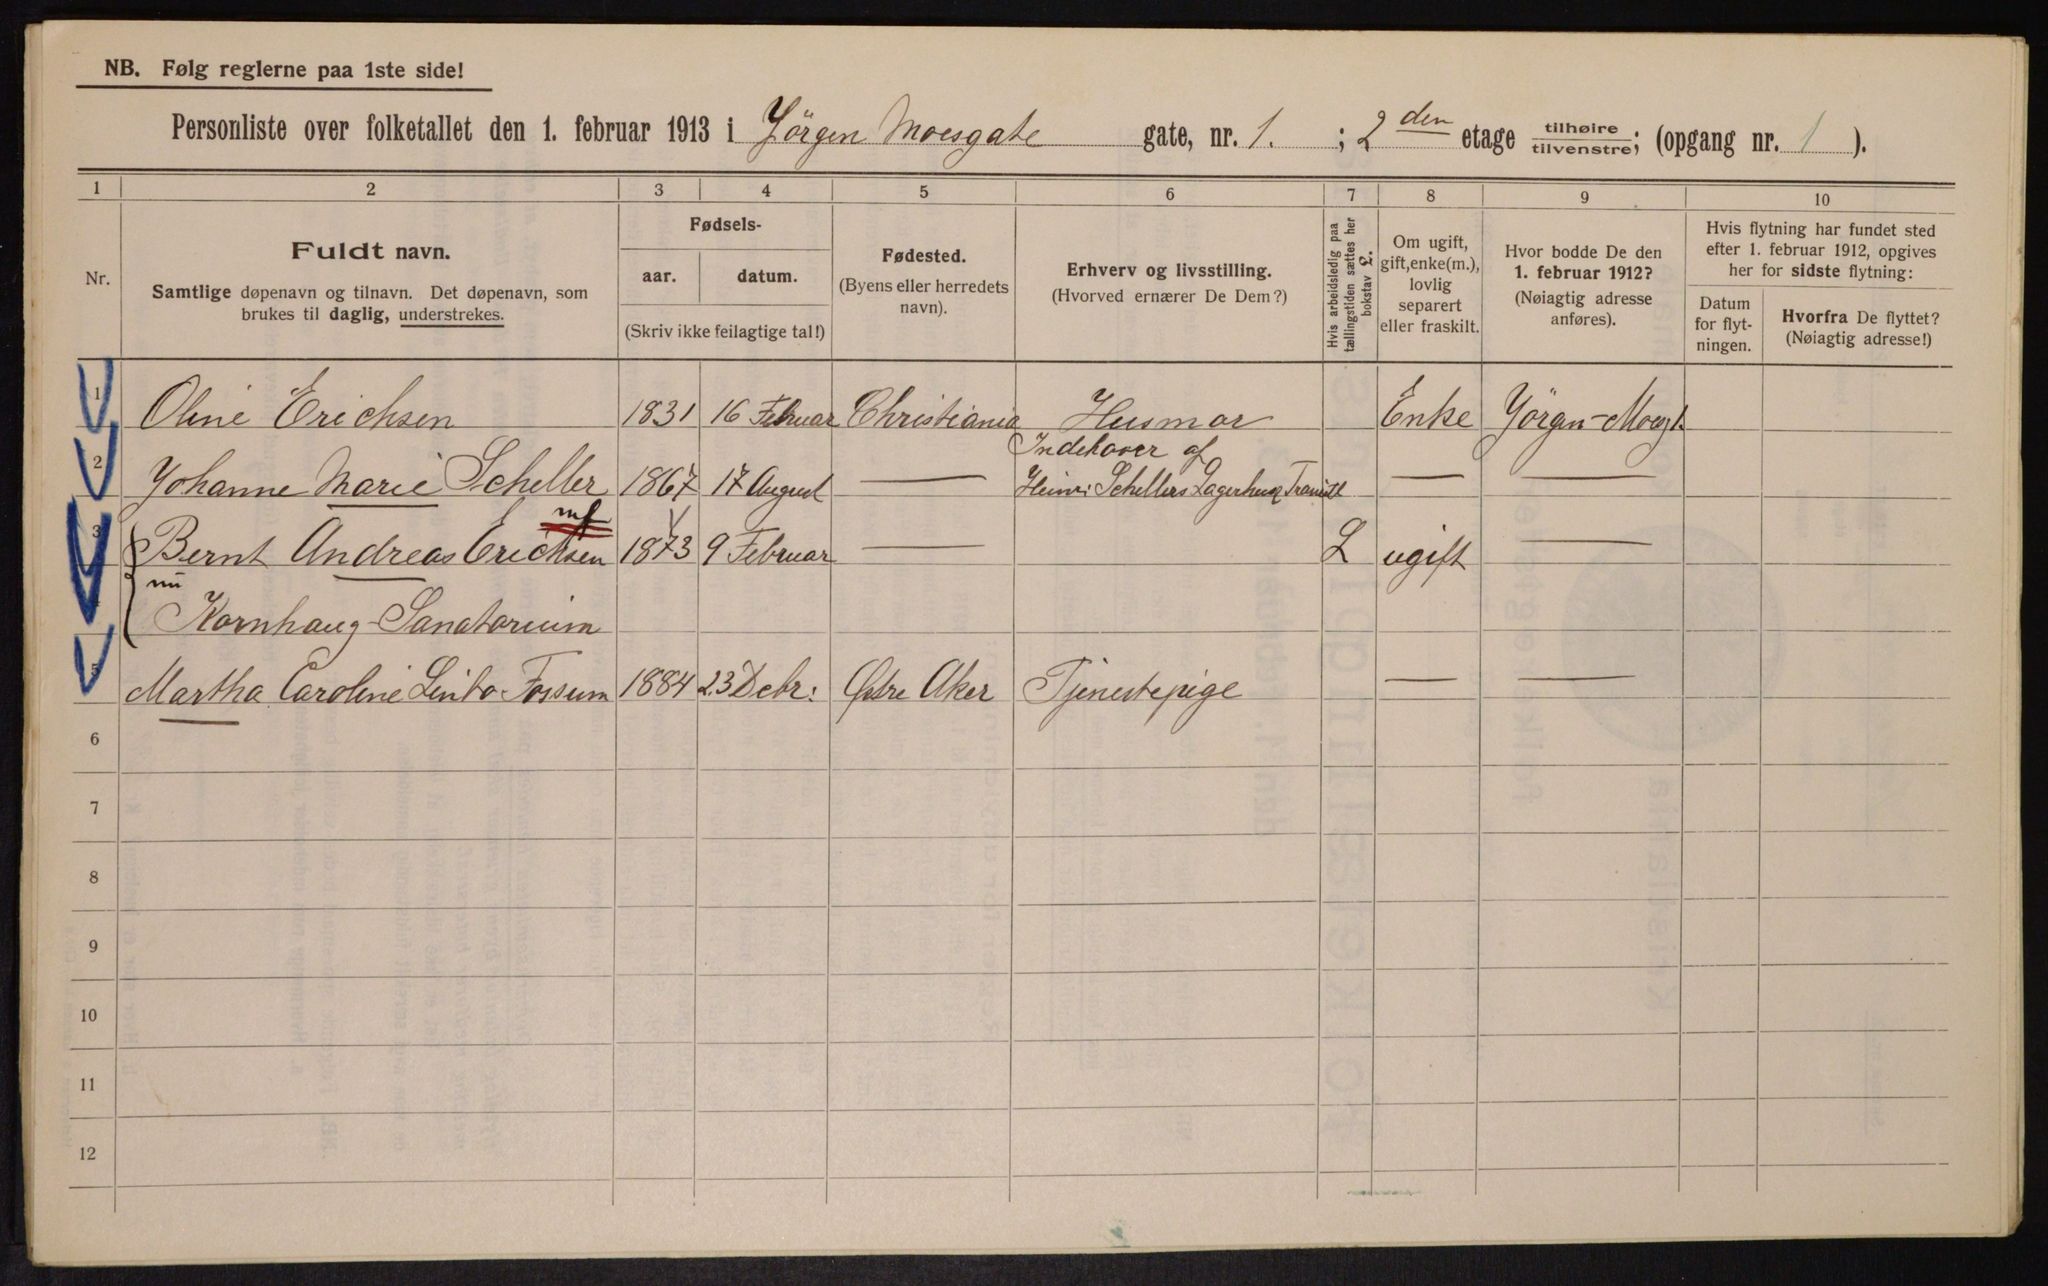 NB. Følg reglerne paa 1ste side!
Personliste over folketallet den 1. februar 1913 i Jörgen Moesgate gate, nr. 1. ; 2den etage tilhøire/tilvenstre; (opgang nr. 1 ).
1 2 3 4 5 6 7 8 9 10
Nr.
Fuldt navn.
Samtlige døpenavn og tilnavn. Det døpenavn, som
brukes til daglig, understrekes.
Fødsels-
aar. datum.
(Skriv ikke feilagtige tal!)
Fødested.
(Byens eller herredets
navn).
Erhverv og livsstilling.
(Hvorved ernærer De Dem?)
Hvis arbeidsledig paa
tællingstiden sættes her
bokstav L.
Om ugift,
gift, enke(m.),
lovlig
separert
eller fraskilt.
Hvor bodde De den
1. februar 1912?
(Nøiagtig adresse
anføres).
Hvis flytning har fundet sted
efter 1. februar 1912, opgives
her for sidste flytning:
Datum
for flyt-
ningen.
Hvorfra De flyttet?
(Nøiagtig adresse!)
1 Oline Erichsen 1831 16 Februar Christiania Husmor Enke Jörgen-Moesgt.
Indehaver af
2 Johanne Marie Scheller 1867 17 August — Heinr: Schellers Lagerhus — —
mf
3 Bernt Andreas Erichsen 1873 9 Februar — L ugift —
nu
4 Kornhaug-Sanatorium
5 Martha Caroline Fossum 1884 23 Debr: Østre Aker Tjenestepige — —
6
7
8
9
10
11
12